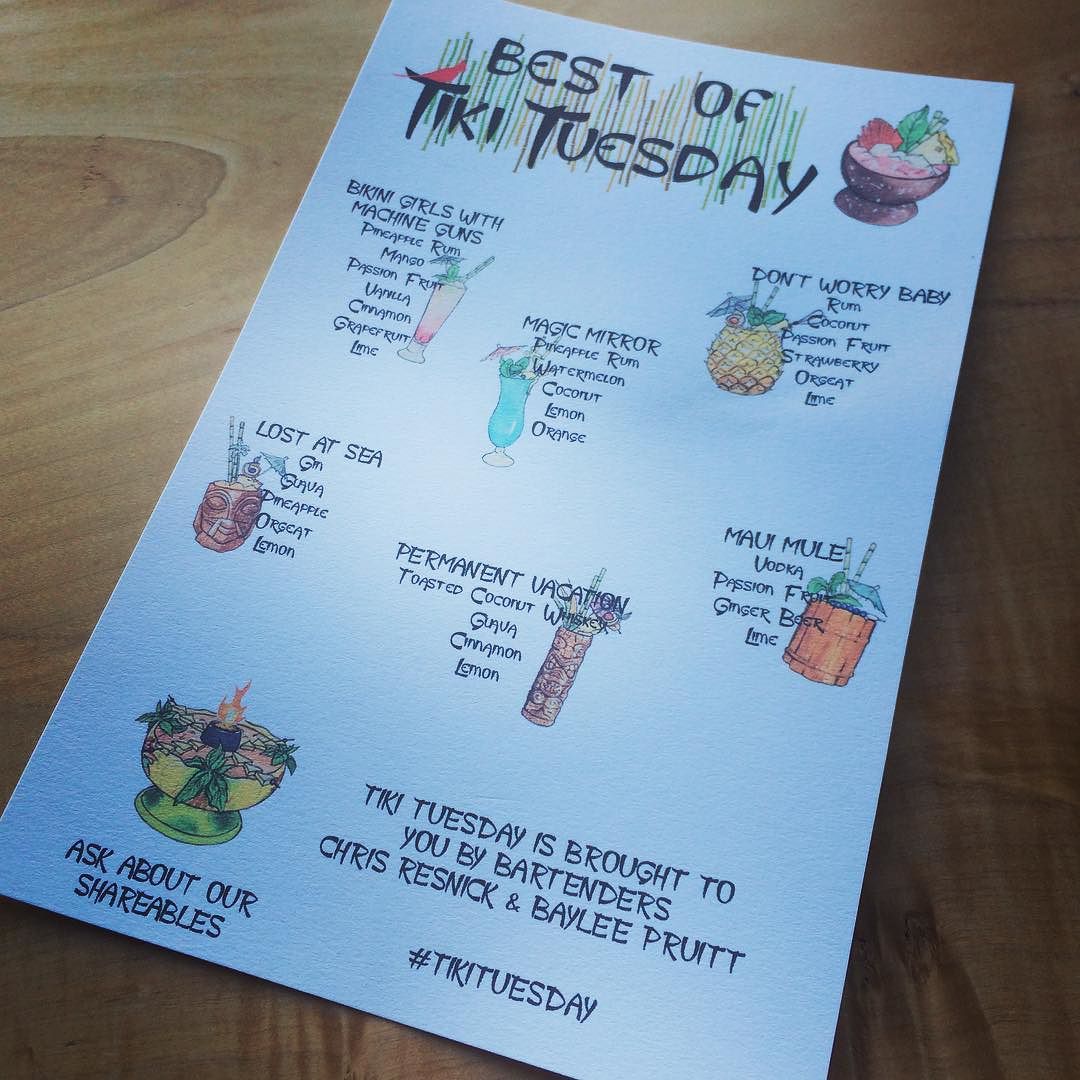 BEST OF
TIKI TUESDAY
BIKINI GIRLS WITH
MACHINE GUNS
PINEAPPLE RUM
MANGO
PASSION FRUIT
VANILLA
CINNAMON
GRAPEFRUIT
LIME
MAGIC MIRROR
PINEAPPLE RUM
WATERMELON
COCONUT
LEMON
ORANGE
DON'T WORRY BABY
RUM
COCONUT
PASSION FRUIT
STRAWBERRY
ORGEAT
LIME
LOST AT SEA
GIN
GUAVA
PINEAPPLE
ORGEAT
LEMON
PERMANENT VACATION
TOASTED COCONUT WHISKEY
GUAVA
CINNAMON
LEMON
MAUI MULE
VODKA
PASSION FRUIT
GINGER BEER
LIME
ASK ABOUT OUR
SHAREABLES
TIKI TUESDAY IS BROUGHT TO
YOU BY BARTENDERS
CHRIS RESNICK & BAYLEE PRUITT
#TIKITUESDAY